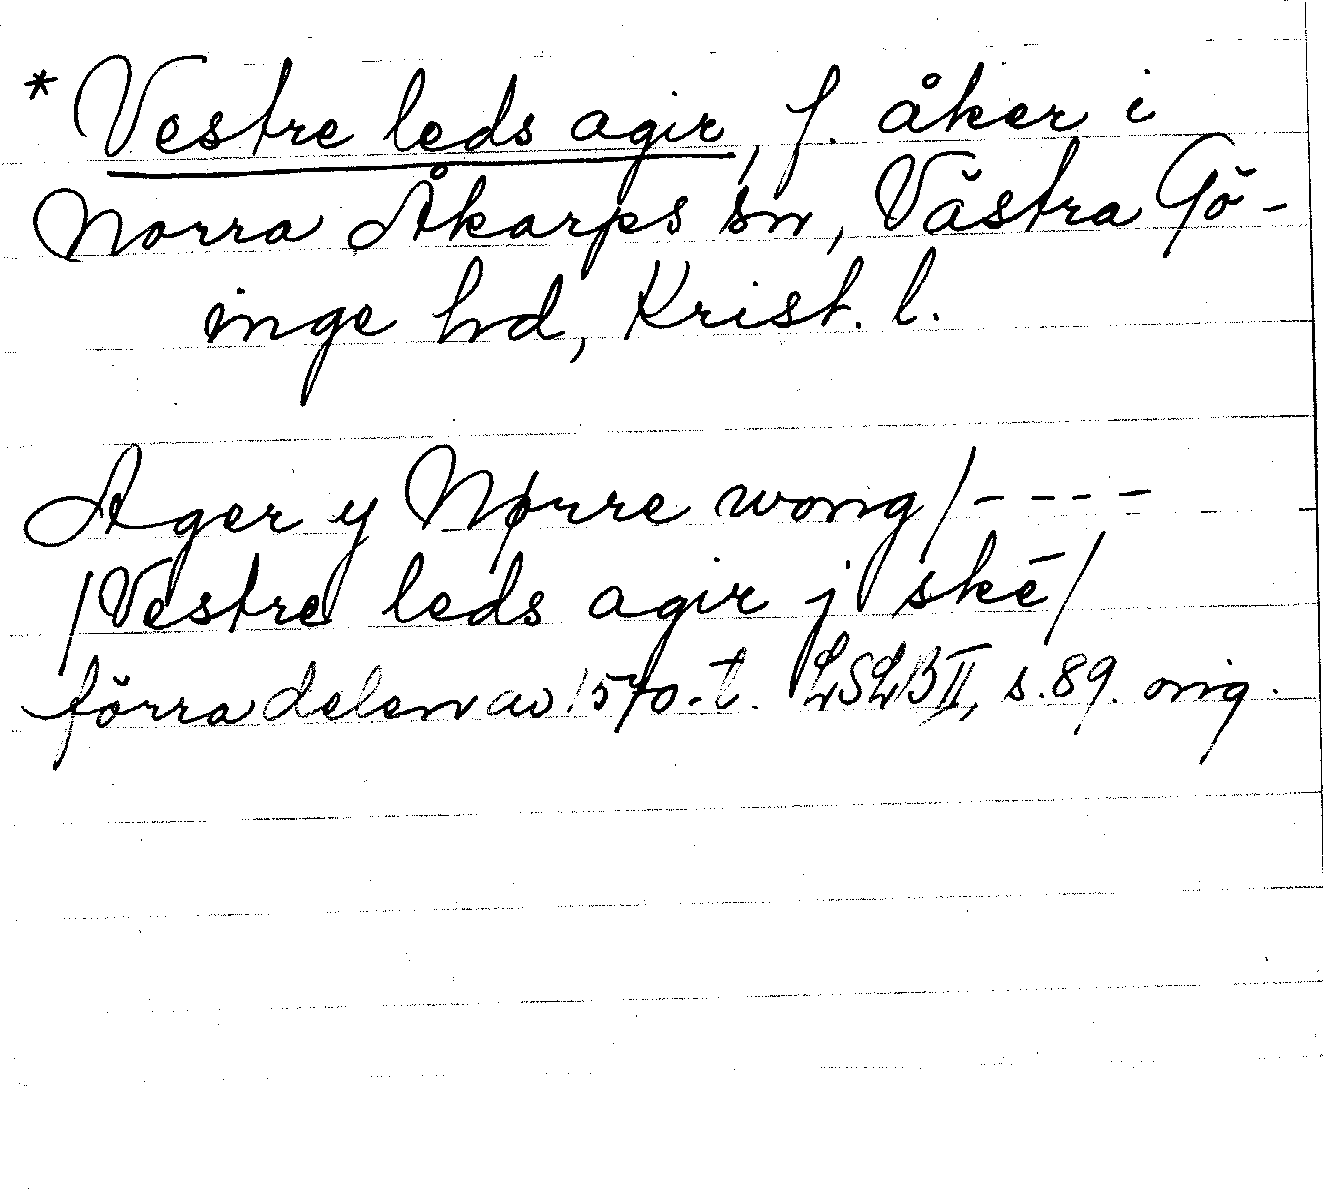 * Vestre leds agir, f. åker i
Norra Åkarps sn, Västra Gö-
inge hd, Krist. l.
Ager y Nørre wong/----
/Vestre leds agir j skē/
förra delen av 1570-t. LSLB II, s. 89. orig.